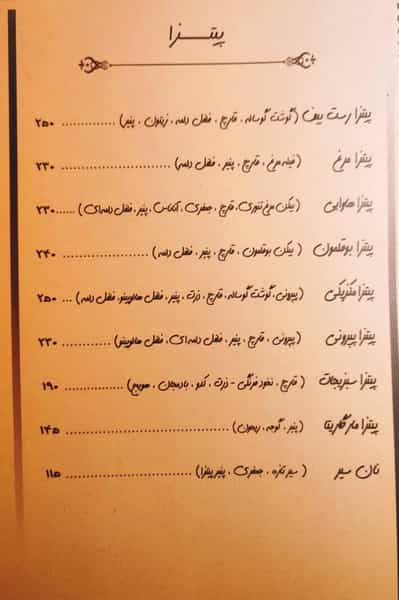 پیتزا
پیتزا رست بیف (گوشت گوساله ، قارچ ، فلفل دلمه ، زیتون ، پنیر) .............. ۲۵۰
پیتزا مرغ (فیله مرغ ، قارچ ، پنیر ، فلفل دلمه) .............................. ۲۳۰
پیتزا هاوایی (بیکن مرغ تنوری، قارچ ، جعفری ، آناناس ، پنیر ، فلفل دلمه ای) ...... ۲۳۰
پیتزا بوقلمون (بیکن بوقلمون ، قارچ ، پنیر ، فلفل دلمه) ...................... ۲۴۰
پیتزا مکزیکی (پپرونی، گوشت گوساله، قارچ ، ذرت ، پنیر ، فلفل هالوپینو، فلفل دلمه) ... ۲۵۰
پیتزا پپرونی (پپرونی ، قارچ ، پنیر ، فلفل دلمه ای، فلفل هالوپینو) ............. ۲۳۰
پیتزا سبزیجات (قارچ ، نخود فرنگی - ذرت ، کدو ، بادمجان ، هویج) ................ ۱۹۰
پیتزا مارگاریتا (پنیر ، گوجه ، ریحون) ........................................ ۱۴۵
نان سیر (سیر تازه ، جعفری ، پنیر پیتزا) ................................ ۱۱۵